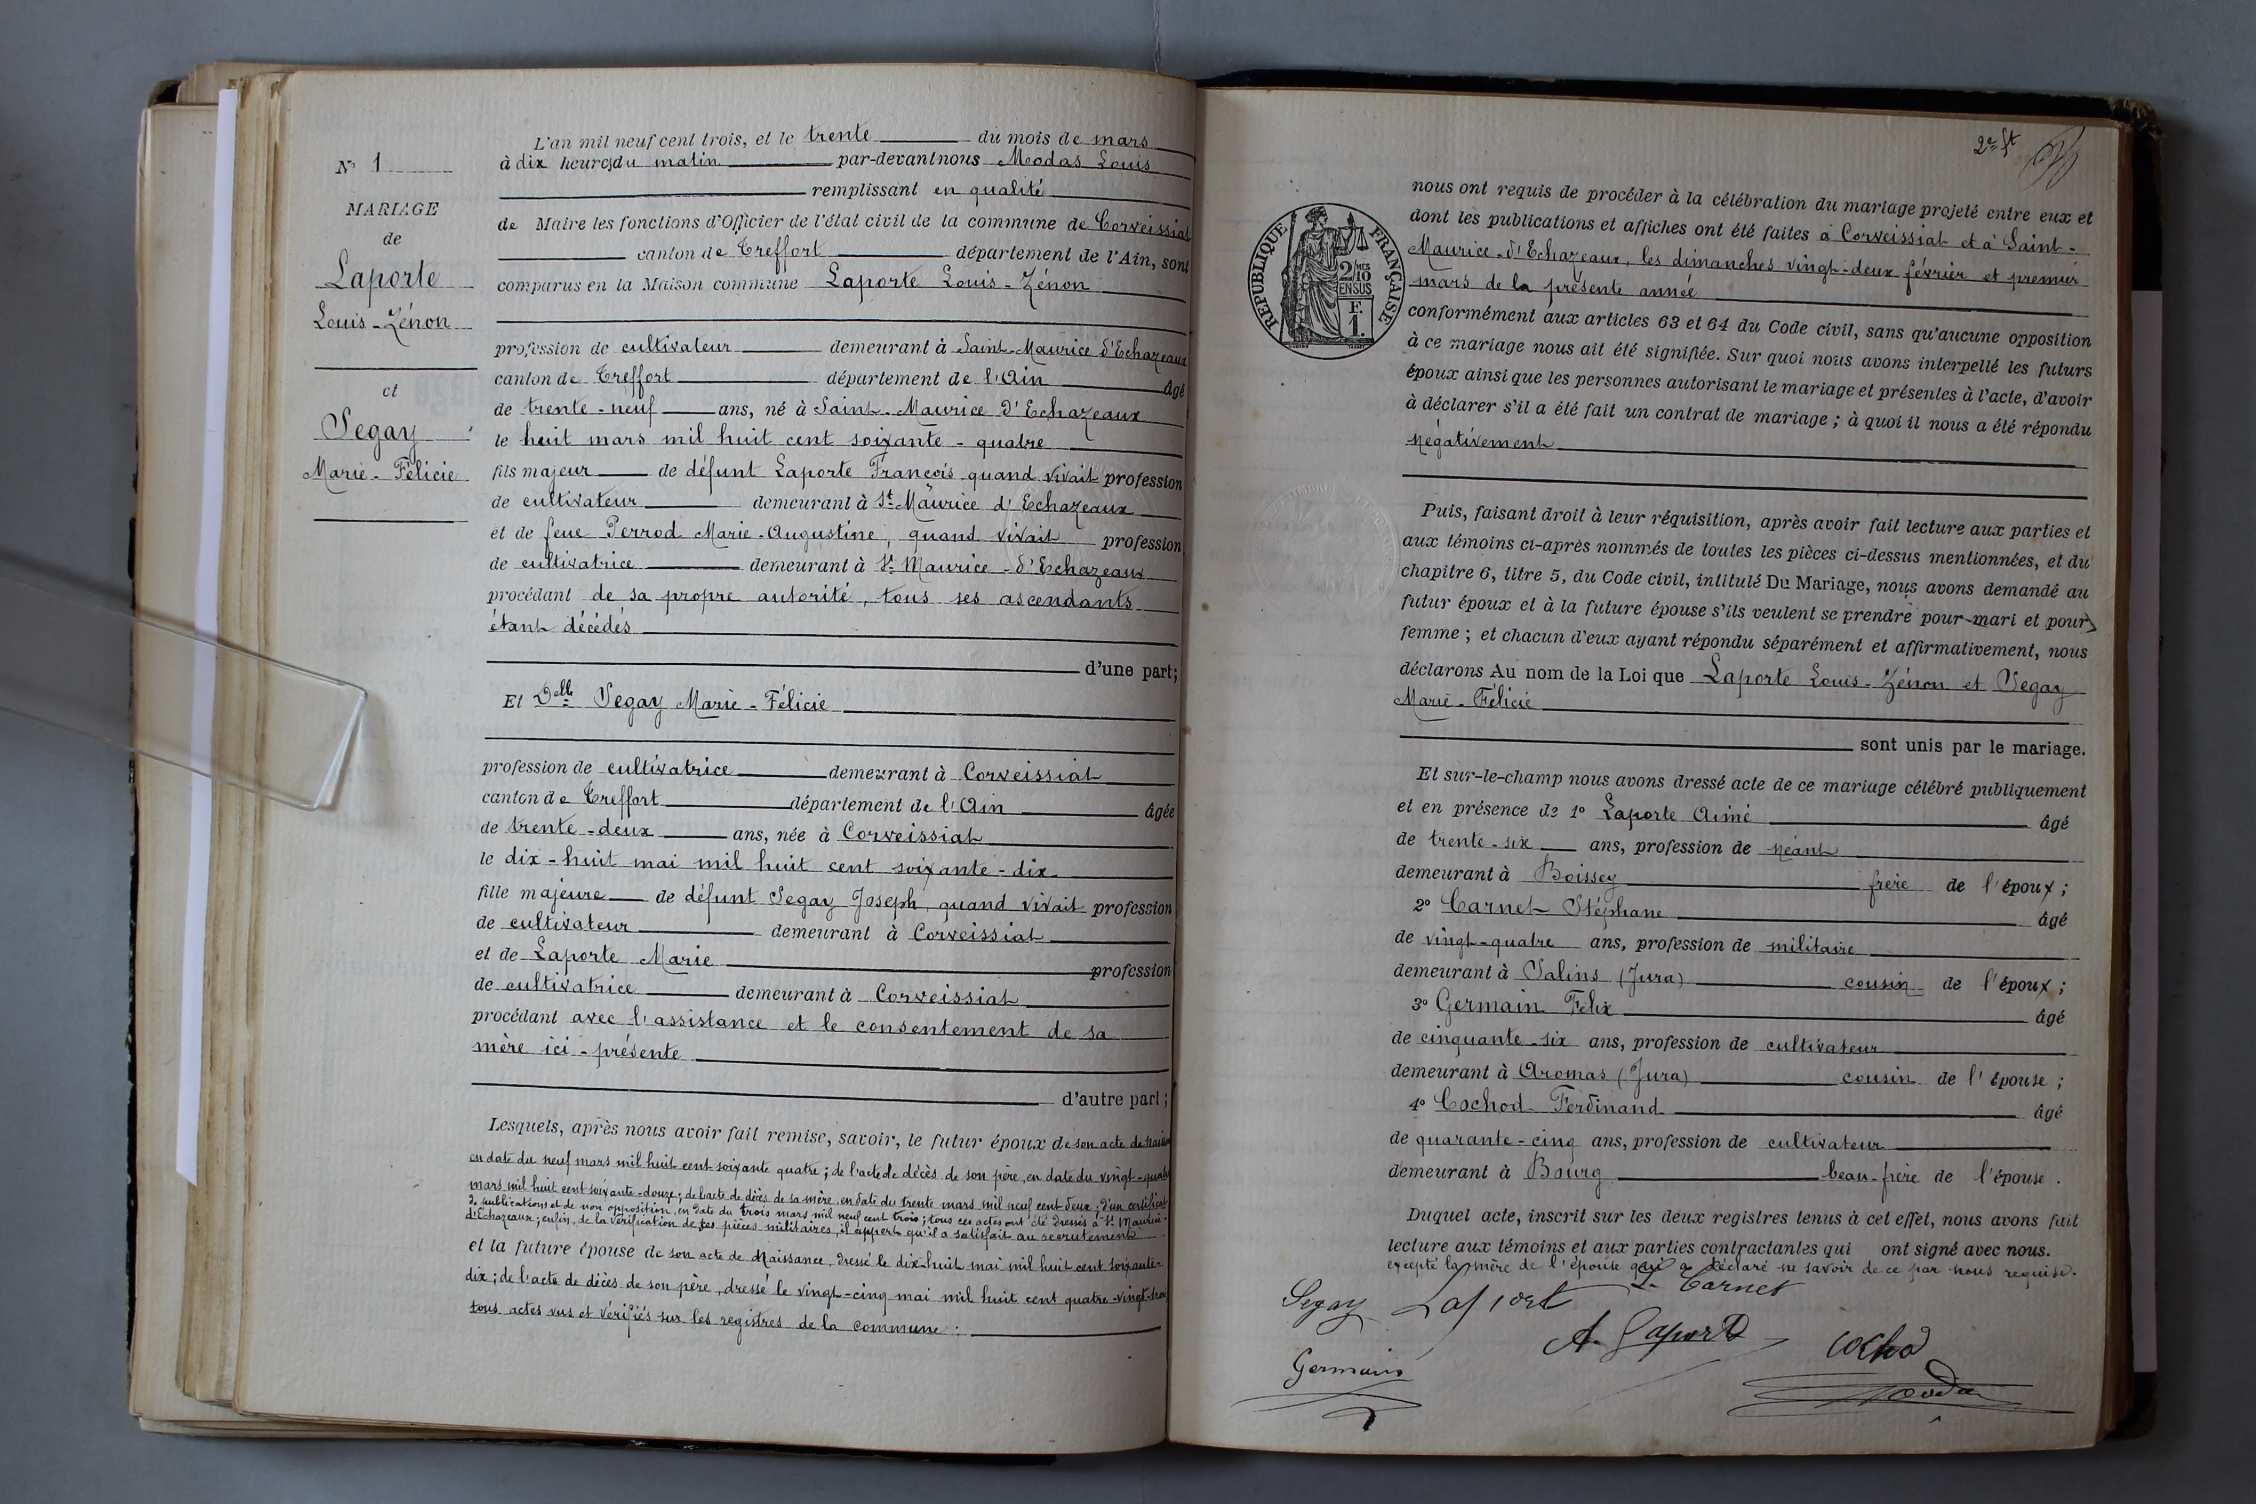 N° 1
MARIAGE
de
Laporte
Louis-Zénon
et
Segay
Marie-Félicie
L'an mil neuf cent trois, et le trente du mois de mars
à dix heures du matin par-devant nous Modas Louis
remplissant en qualité
de Maire les fonctions d'Officier de l'état civil de la commune de Corveissiat
canton de Treffort département de l'Ain, sont
comparus en la Maison commune Laporte Louis-Zénon
profession de cultivateur demeurant à Saint-Maurice d'Echazeaux
canton de Treffort département de l'Ain âgé
de trente-neuf ans, né à Saint-Maurice d'Echazeaux
le huit mars mil huit cent soixante-quatre
fils majeur de défunt Laporte François quand vivait profession
de cultivateur demeurant à St-Maurice d'Echazeaux
et de feue Perrod Marie-Augustine, quand vivait profession
de cultivatrice demeurant à St Maurice-d'Echazeaux
procédant de sa propre autorité, tous ses ascendants
étant décédés
d'une part;
Et Delle Segay Marie-Félicie
profession de cultivatrice demeurant à Corveissiat
canton de Treffort département de l'Ain âgée
de trente-deux ans, née à Corveissiat
le dix-huit mai mil huit cent soixante-dix
fille majeure de défunt Segay Joseph, quand vivait profession
de cultivateur demeurant à Corveissiat
et de Laporte Marie profession
de cultivatrice demeurant à Corveissiat
procédant avec l'assistance et le consentement de sa
mère ici-présente
d'autre part;
Lesquels, après nous avoir fait remise, savoir, le futur époux de son acte de
en date du neuf mars mil huit cent soixante quatre; de l'acte de décès de son père, en date du vingt-quatre
mars mil huit cent soixante-douze; de l'acte de décès de sa mère, en date du trente mars mil neuf cent deux; d'un certificat
de publications et de non opposition, en date du trois mars mil neuf cent trois; tous ces actes ont été dressés à St Maurice-
d'Echazeaux; enfin, de la vérification de ses pièces militaires, il appert qu'il a satisfait au recrutement
et la future épouse de son acte de Naissance, dressé le dix-huit mai mil huit cent soixante-
dix; de l'acte de décès de son père, dressé le vingt-cinq mai mil huit cent quatre-vingt-
tous actes vus et vérifiés sur les registres de la commune.
2e ft
nous ont requis de procéder à la célébration du mariage projeté entre eux et
dont les publications et affiches ont été faites à Corveissiat et à Saint-
Maurice-d'Echazeaux, les dimanches vingt-deux février et premier
mars de la présente année
RÉPUBLIQUE FRANÇAISE
2/10 MES
EN SUS
F.
1.
conformément aux articles 63 et 64 du Code civil, sans qu'aucune opposition
à ce mariage nous ait été signifiée. Sur quoi nous avons interpellé les futurs
époux ainsi que les personnes autorisant le mariage et présentes à l'acte, d'avoir
à déclarer s'il a été fait un contrat de mariage; à quoi il nous a été répondu
négativement
Puis, faisant droit à leur réquisition, après avoir fait lecture aux parties et
aux témoins ci-après nommés de toutes les pièces ci-dessus mentionnées, et du
chapitre 6, titre 5, du Code civil, intitulé Du Mariage, nous avons demandé au
futur époux et à la future épouse s'ils veulent se prendre pour mari et pour
femme; et chacun d'eux ayant répondu séparément et affirmativement, nous
déclarons Au nom de la Loi que Laporte Louis-Zénon et Segay
Marie-Félicie
sont unis par le mariage.
Et sur-le-champ nous avons dressé acte de ce mariage célébré publiquement
et en présence de 1° Laporte Aimé âgé
de trente-six ans, profession de néant
demeurant à Boissey frère de l'époux;
2° Carnet Stéphane âgé
de vingt-quatre ans, profession de militaire
demeurant à Salins (Jura) cousin de l'époux;
3° Germain Félix âgé
de cinquante-six ans, profession de cultivateur
demeurant à Aromas (Jura) cousin de l'épouse;
4° Cochod Ferdinand âgé
de quarante-cinq ans, profession de cultivateur
demeurant à Bourg beau-frère de l'épouse.
Duquel acte, inscrit sur les deux registres tenus à cet effet, nous avons fait
lecture aux témoins et aux parties contractantes qui ont signé avec nous.
excepté la mère de l'épouse qui a déclaré ne savoir de ce par nous requise.
Segay Laporte S. Carnet
A. Laporte Cochod
Germain